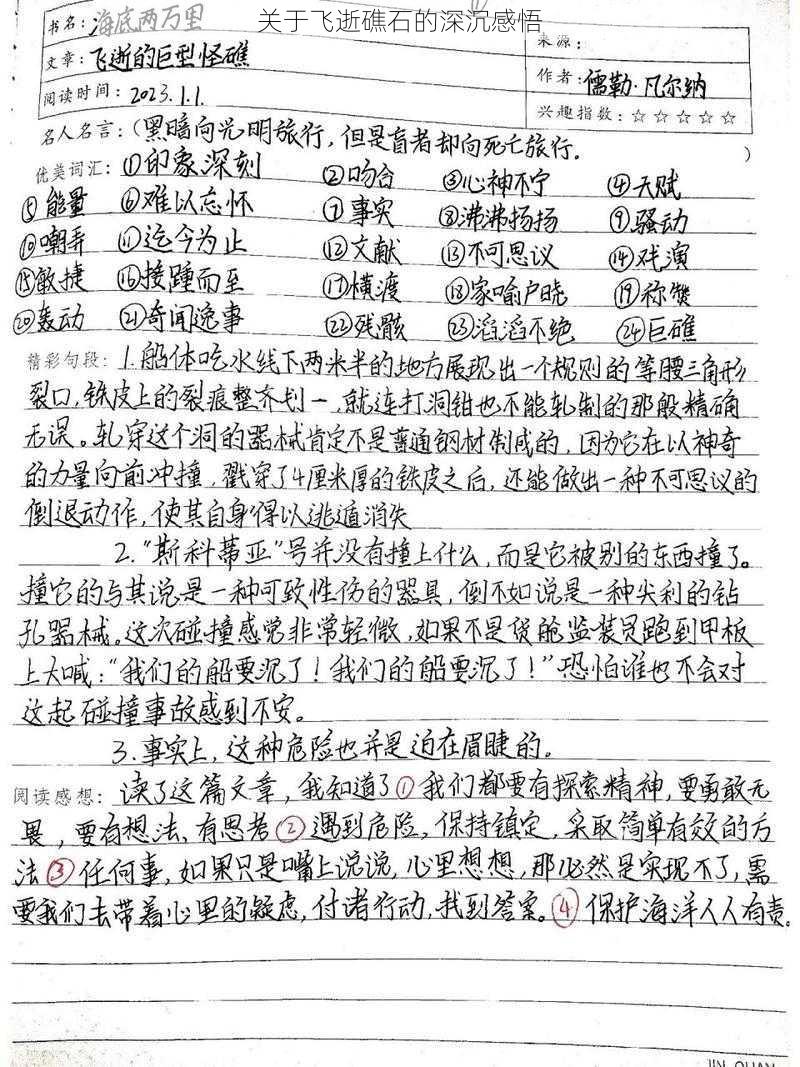 关于飞逝礁石的深沉感悟
书名：海底两万里
来源：
文章：飞逝的巨型怪礁
作者：儒勒·凡尔纳
阅读时间：2023.1.1.
兴趣指数：☆☆☆☆☆
名人名言：(黑暗向光明旅行，但是盲者却向死亡旅行。)
优美词汇：①印象深刻 ②吻合 ③心神不宁 ④天赋
⑤能量 ⑥难以忘怀 ⑦事实 ⑧沸沸扬扬 ⑨骚动
⑩嘲弄 ⑪迄今为止 ⑫文献 ⑬不可思议 ⑭戏演
⑮敏捷 ⑯接踵而至 ⑰横渡 ⑱家喻户晓 ⑲称赞
⑳轰动 ㉑奇闻逸事 ㉒残骸 ㉓滔滔不绝 ㉔巨礁
精彩句段：1.船体吃水线下两米半的地方展现出一个规则的等腰三角形
裂口，铁皮上的裂痕整齐划一，就连打洞钳也不能轧制的那般精确
无误。轧穿这个洞的器械肯定不是普通钢材制成的，因为它在以神奇
的力量向前冲撞，戳穿了4厘米厚的铁皮之后，还能做出一种不可思议的
倒退动作，使其自身得以逃遁消失
2.“斯科蒂亚”号并没有撞上什么，而是它被别的东西撞了。
撞它的与其说是一种可致性伤的器具，倒不如说是一种尖利的钻
孔器械。这次碰撞感觉非常轻微，如果不是货舱监装员跑到甲板
上大喊：“我们的船要沉了！我们的船要沉了！”恐怕谁也不会对
这起碰撞事故感到不安。
3.事实上，这种危险也并是迫在眉睫的。
阅读感想：读了这篇文章，我知道了①我们都要有探索精神，要勇敢无
畏，要有想法、有思考②遇到危险，保持镇定，采取简单有效的方
法③任何事，如果只是嘴上说说，心里想想，那必然是实现不了，需
要我们去带着心里的疑虑，付诸行动，找到答案。④保护海洋人人有责。